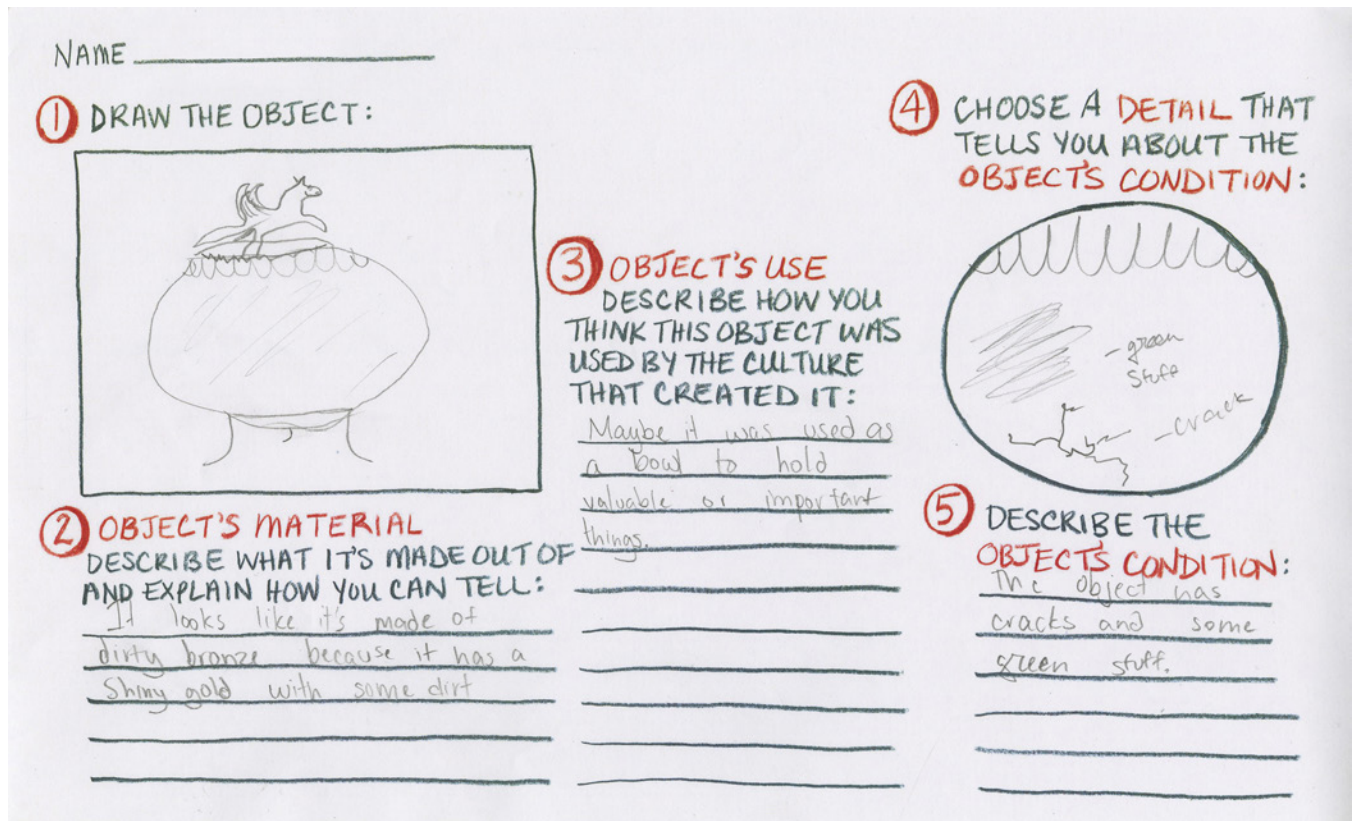 NAME
1 DRAW THE OBJECT:
2 OBJECT'S MATERIAL
DESCRIBE WHAT IT'S MADE OUT OF
AND EXPLAIN HOW YOU CAN TELL:
It looks like it's made of
dirty bronze because it has a
Shiny gold with some dirt
3 OBJECT'S USE
DESCRIBE HOW YOU
THINK THIS OBJECT WAS
USED BY THE CULTURE
THAT CREATED IT:
Maybe it was used as
a bowl to hold
valuable or important
things.
4 CHOOSE A DETAIL THAT
TELLS YOU ABOUT THE
OBJECT'S CONDITION:
-green
stuff
-crack
5 DESCRIBE THE
OBJECT'S CONDITION:
The object has
cracks and some
green stuff.